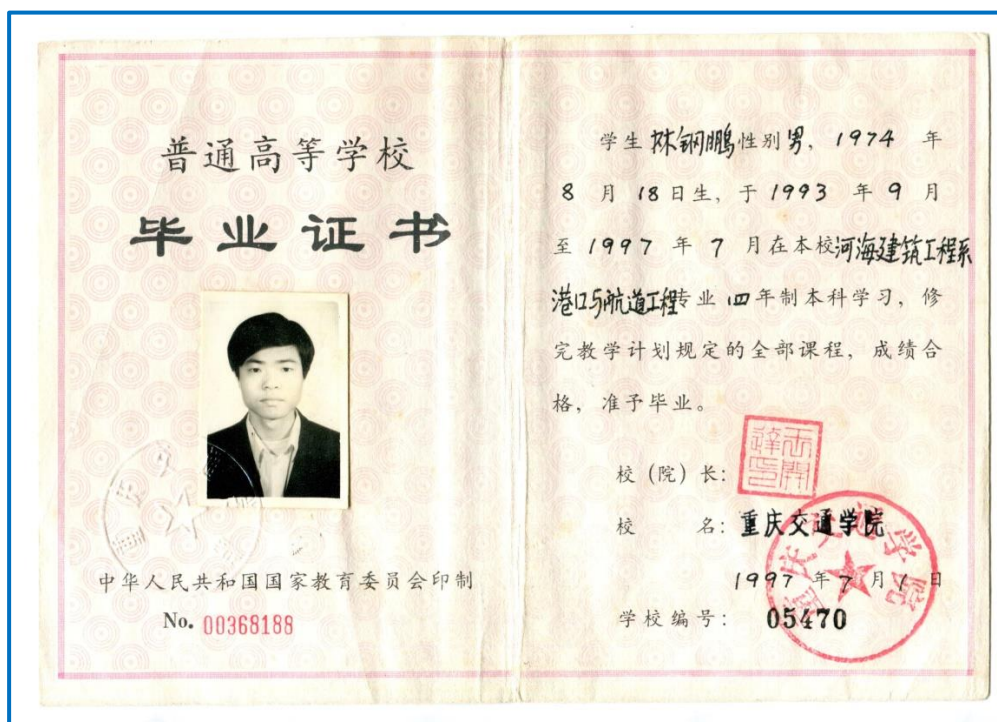 普通高等学校
毕业证书
中华人民共和国国家教育委员会印制
No. 00368188
学生林钢鹏性别男，1974 年
8 月 18日生，于 1993 年 9 月
至 1997 年 7 月在本校河海建筑工程系
港口与航道工程专业 四 年制本科学习，修
完教学计划规定的全部课程，成绩合
格，准予毕业。
校（院）长：
校 名：重庆交通学院
1997 年 7 月 1 日
学校编号： 05470
重庆交通学院